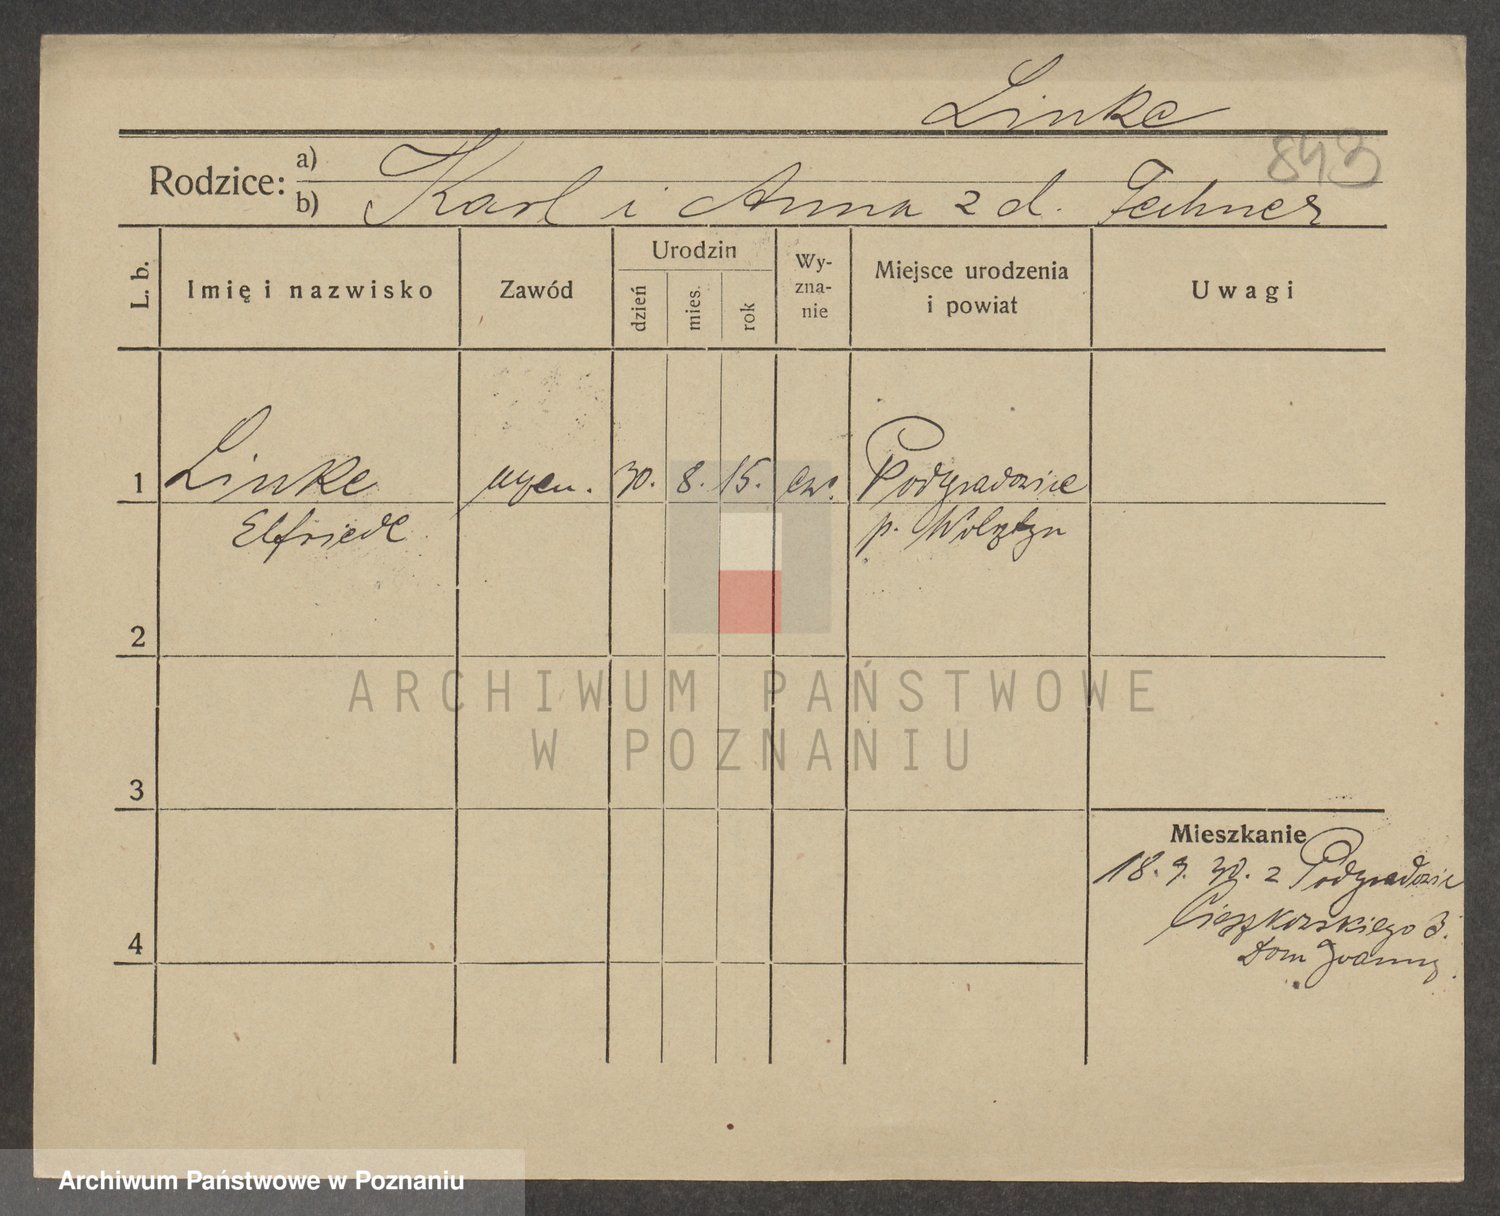 Linke
843
Rodzice:
a)
b) Karl i Anna z d. Fechner
L. b.
Imię i nazwisko
Zawód
Urodzin
dzień
mies.
rok
Wy-
zna-
nie
Miejsce urodzenia
i powiat
Uwagi
1 Linke uczen. 30. 8. 15. ew. Podgradowice
Elfriede p. Wolsztyn
2
3
4
Mieszkanie
18. 9. 30. z Podgradowic
Cieszkowskiego 3.
Dom Joanny
ARCHIWUM PAŃSTWOWE
W POZNANIU
Archiwum Państwowe w Poznaniu